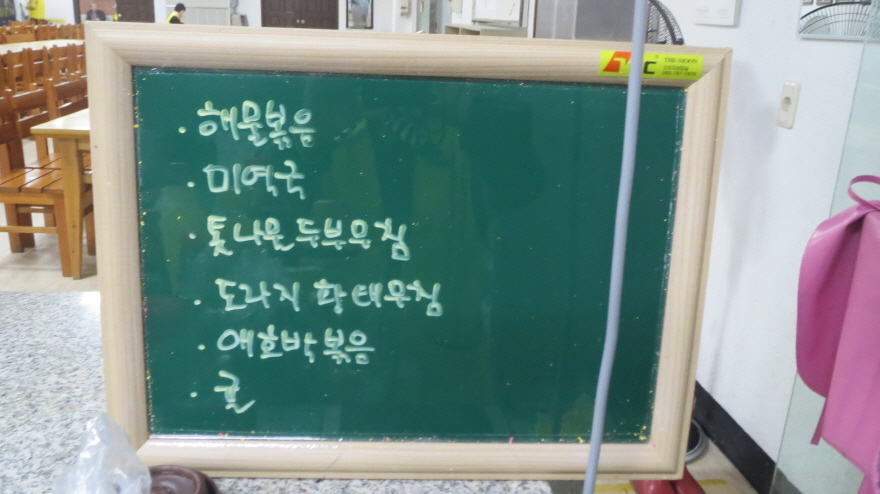 · 해물볶음
· 미역국
· 톳나물두부무침
· 도라지 황태무침
· 애호박볶음
· 귤